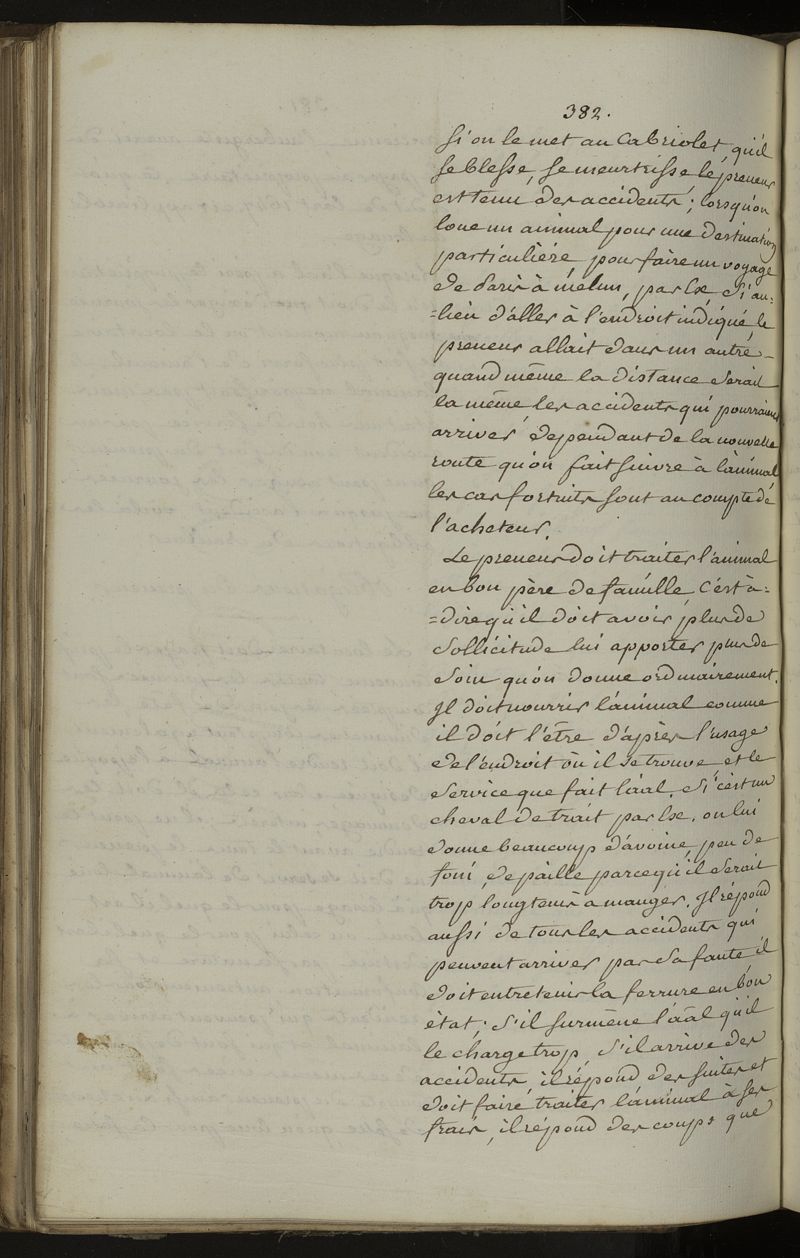 382.
Si on le met au Cabriolet, qu'il
se blesse, se meurtrisse, le preneur
est tenu des accidents; lorsqu'on
loue un animal pour une destination
particulière pour faire un voyage
de Paris à melun, par Ex, Si au=
=lieu d'aller à l'endroit indiqué, le
preneur allait dans un autre
quand même la distance serait
la même les accidents qui pourraient
arriver dependant de la nouvelle
route qu'on fait suivre à l'animal
les cas fortuits sont au compte de
l'acheteur.
Le preneur doit traiter l'animal
en bon père de famille, C'est à=
=dire qu'il doit avoir, plus de
sollicitude lui apporter plus de
soin qu'on donne ordinairement.
Il doit nourrir l'animal comme
il doit l'être d'après l'usage
de l'endroit où il se trouve, et le
service que fait l'aal. Si c'est un
cheval de trait par Ex. on lui
donne beaucoup d'avoine, peu de
foin, de paille parcequ'il serait
trop longtems à manger. Il répond
aussi de tous les accidents qui
peuvent arriver par sa faute il
doit entretenir la ferrure en bon
état; S'il surmène l'aal qu'il
le charge trop, s'il arrive des
accidents, il répond des suites et
doit faire traiter l'animal à ses
frais, il répond des coups que